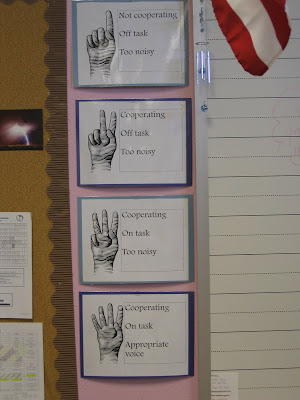 Not cooperating
Off task
Too noisy
Cooperating
Off task
Too noisy
Cooperating
On task
Too noisy
Cooperating
On task
Appropriate
voice